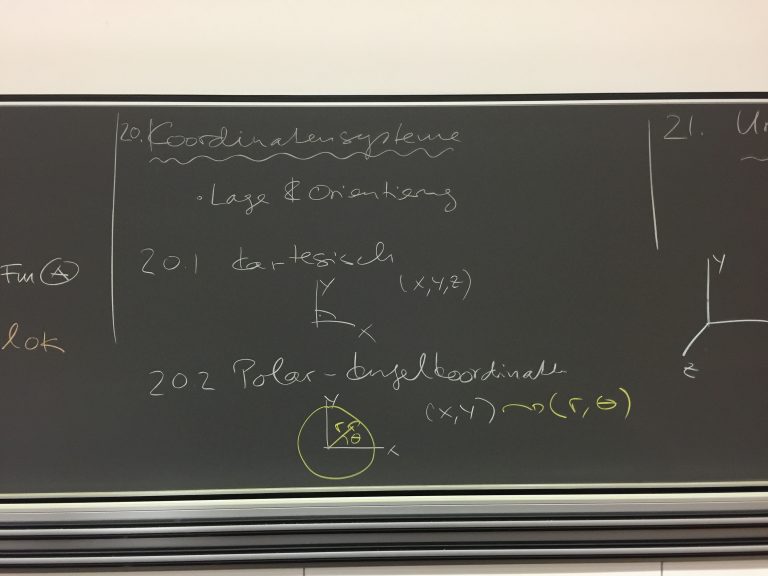 20. Koordinatensysteme
· Lage & Orientierung
20.1 kartesisch
(x,y,z)
Y
X
20.2 Polar-Kugelkoordinaten
(x,y) ⤳ (r,θ)
Y
r
θ
X
Fm Ⓐ
lok
21.
Y
Z